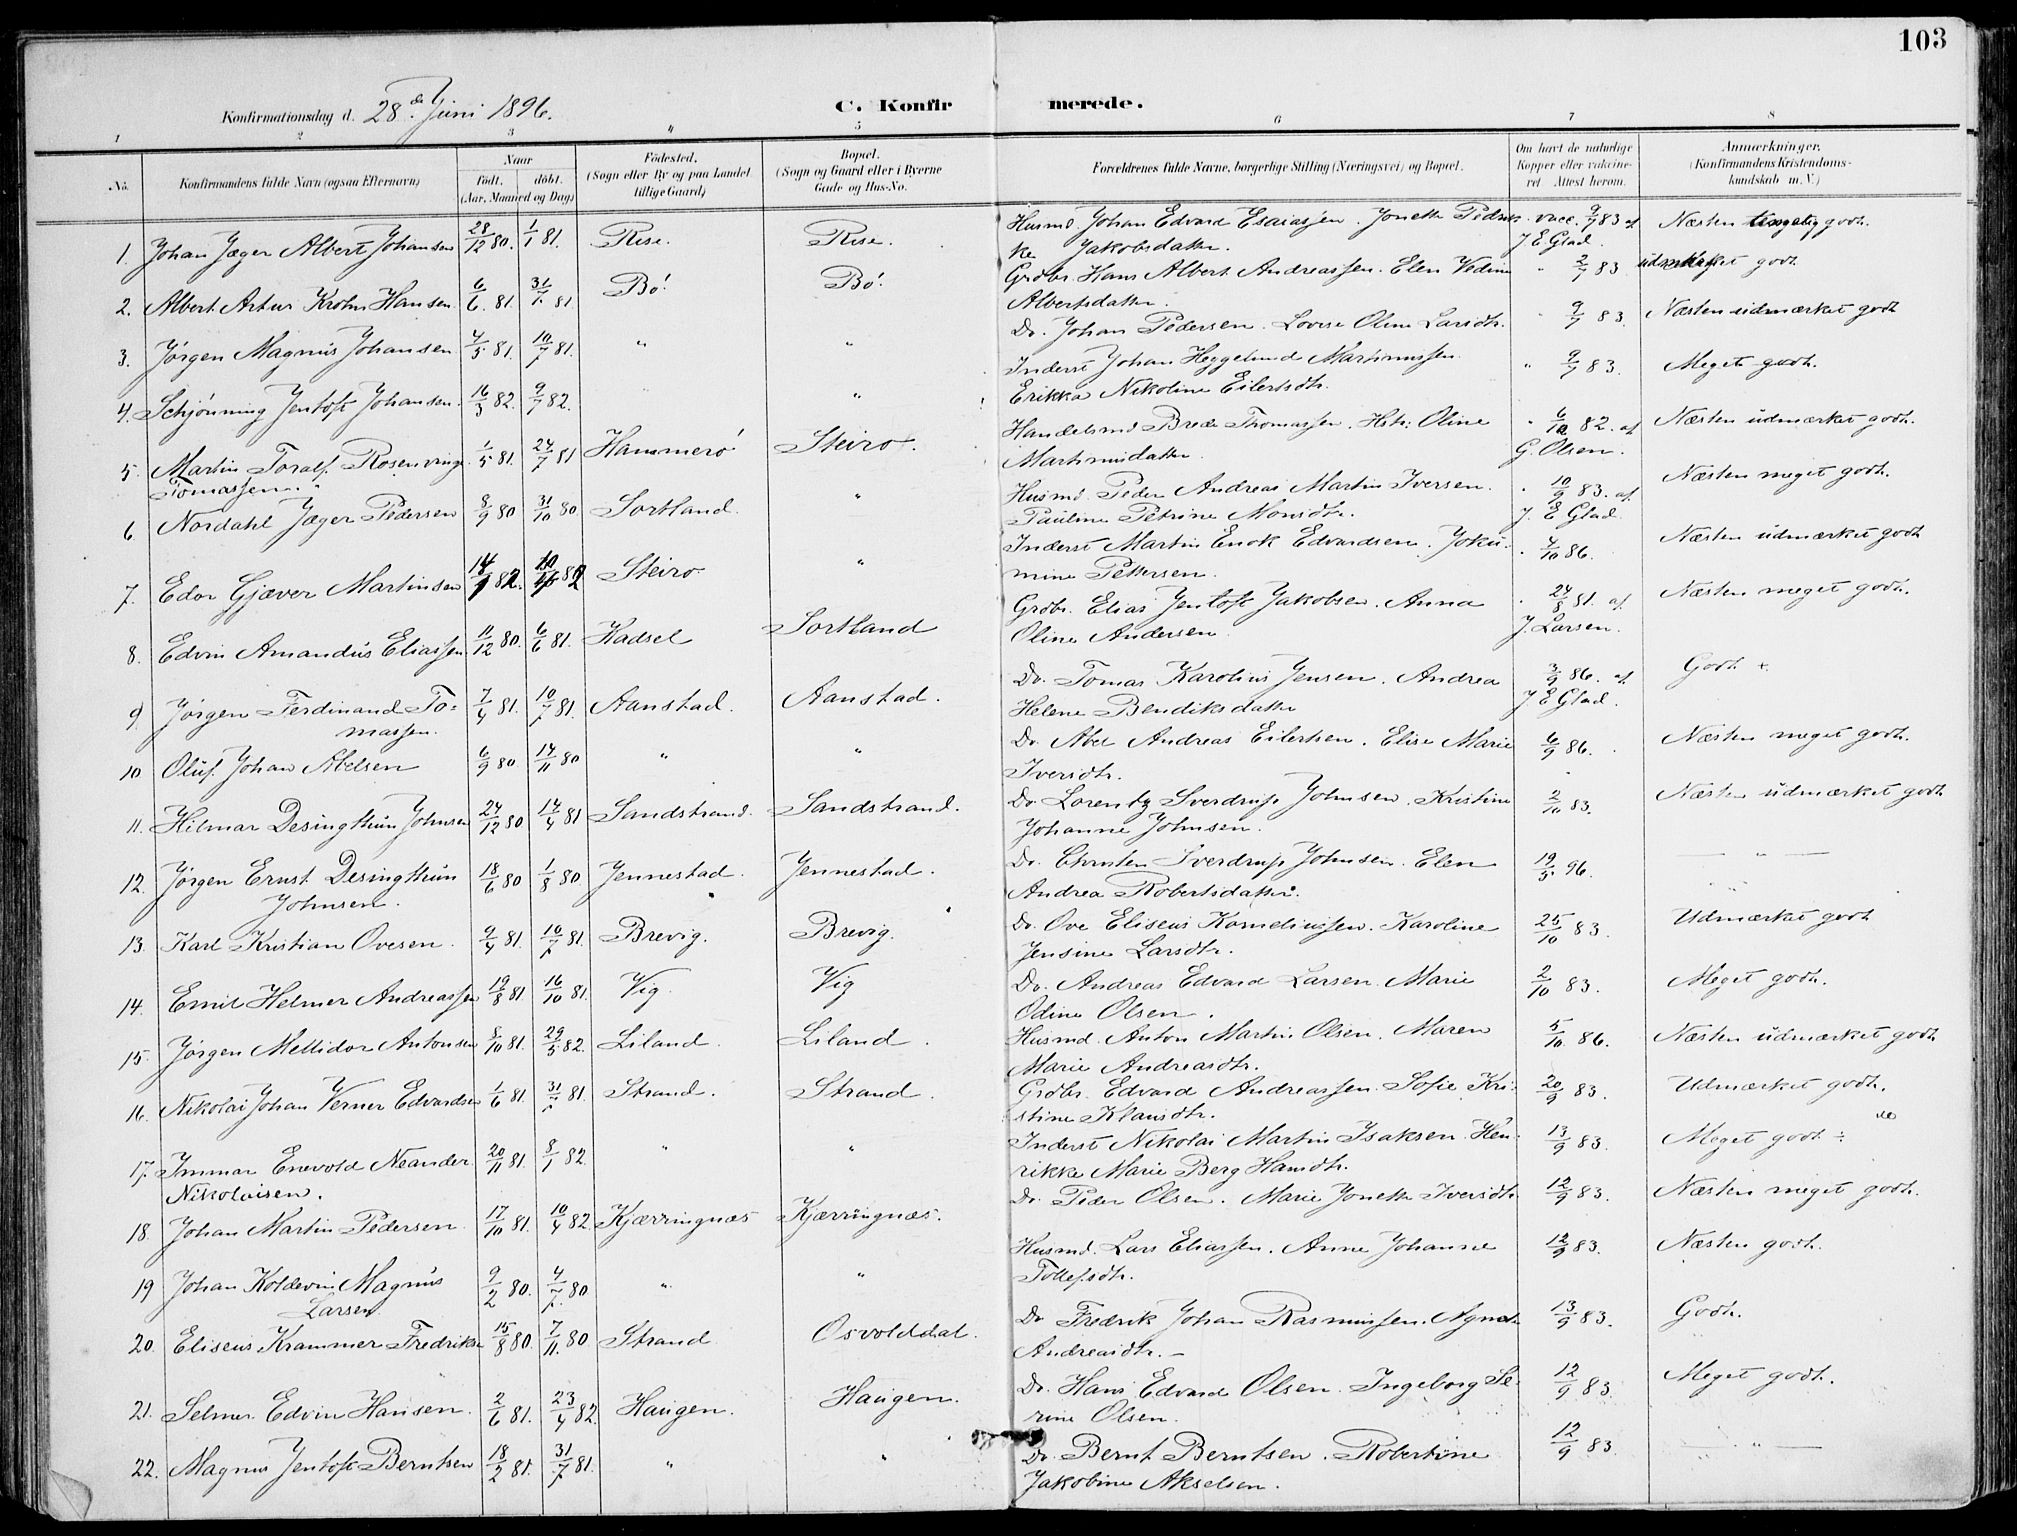 103
Konfirmationsdag d. 28de Juni 1896.
C. Konfirmerede.
1 2 3 4 5 6 7 8
No. Konfirmandens fulde Navn (ogsaa Efternavn) Naar født, døbt. (Aar, Maaned og Dag) Fødested. (Sogn eller By og paa Landet tillige Gaard) Bopæl. (Sogn og Gaard eller i Byerne Gade og Hus-No. Forældrenes fulde Navne, borgerlige Stilling (Næringsvei) og Bopæl. Om havt de naturlige Kopper eller vaccineret. Attest herom. Anmærkninger. (Konfirmandens Kristendomskundskab m. V.)
1. Johan Jæger Albert Johansen 28/12 80. 1/1 81. Rise. Rise. Husmd. Johan Edvard Esaiassen. Jonette Pedrikke Jakobsdatter. vacc. 9/7 83 af J E Glad. Næsten godt.
2. Albert Artur Krohn Hansen 6/6. 81. 31/7. 81 Bö. Bö. Grdbr. Hans Albert Andreassen. Elen Vedine Albertsdatter. " 2/7 83 udmærket godt
3. Jørgen Magnus Johansen 4/5 81. 10/7 81. " " Do. Johan Pedersen. Lovise Oline Larsdtr. " 9/7 83. Næsten udmærket godt
4. Schjønning Jentoft Johansen. 16/3 82. 9/7 82. " " Inderst Johan Heggelund Martinussen. Erikka Nikoline Eilertsdtr. " 9/7 83. Meget godt.
5. Martin Toralf Rosenvinge Tomassen. 1/5 81. 24/7 81 Hammerö Steiro. Handelsmd Brede Thomassen. Hstr: Oline Martinusdatter. " 6/10 82. af G. Olsen. Næsten udmærket godt.
6. Nordahl Jæger Pedersen 8/9 80 31/10 80. Sortland. " Husmd. Peder Andreas Martin Iversen. Pauline Petrine Monsdtr. " 10/9 83. af J. E Glad. Næsten meget godt.
7. Edor Gjæver Martinsen 82. 82 Steiro. " Inderst Martin Enok Edvardsen. Jokumine Pettersen. " 4/10 86. Næsten udmærket godt
8. Edvin Amandus Eliassen 11/12 80. 6/6 81. Hadsel Sortland Grdbr. Elias Jentoft Jakobsen. Anna Oline Andersen. " 24/8 81. af J. Larsen. Næsten meget godt.
9. Jørgen Ferdinand Tomassen. 7/4 81. 10/7 81. Aanstad. Aanstad. Do. Tomas Karolius Jensen. Andrea Helene Bendiksdatter 3/9 86. af J E Glad. Godt +.
10 Oluf Johan Abelsen 6/9 80 14/11 80 " " Do. Abel Andreas Eilertsen. Elise Marie Iversdtr. 6/9 86. Næsten meget godt.
11. Hilmar Desingthun Johnsen 24/12 80 14/4 81 Sandstrand. Sandstrand. Do. Lorentz Sverdrup Johnsen. Kristine Johanne Johnsen. 2/10 83. Næsten udmærket godt
12. Jørgen Ernst Desingthun Johnsen. 18/6 80 1/8 80 Jennestad. Jennestad. Do. Christen Sverdrup Johnsen. Elen Andrea Robertsdatter. 19/5 96. — " —
13. Karl Kristian Ovesen. 9/4 81. 10/7 81. Brevig. Brevig. Do. Ove Eliseus Korneliussen. Karoline Jensine Larsdtr. 25/10 83. Udmærket godt
14. Emil Helmer Andreassen 19/8 81. 16/10 81. Vig. Vig Do. Andreas Edvard Larsen. Marie Odine Olsen. 2/10 83. Meget godt.
15. Jørgen Mellidor Antonsen 8/10 81. 29/5 82. Liland. Liland. Husmd. Anton Martin Olsen. Maren Marie Andreasdtr. 5/10. 86. Næsten udmærket godt
16. Nikolai Johan Verner Edvardsen 1/6 81. 31/7 81. Strand. Strand. Grdbr. Edvard Andreassen. Sofie Kristine Klausdtr. 20/9 83. Udmærket godt.
17. Immar Enevold Neander Nikolaisen. 20/11 81. 8/1 82. " " Inderst Nikolai Martin Isaksen. Henrikke Marie Berg Hansdtr. 13/9 83. Meget godt ÷
18. Johan Martin Pedersen. 17/10 81. 10/4 82. Kjærringnæs Kjærringnæs. Do. Peder Olsen. Marie Jonette Iversdtr 12/9 83. Næsten meget godt.
19 Johan Koldevin Magnus Larsen. 9/2 80. 4/7. 80 " " Husmd. Lars Eliassen. Anne Johanne Tollefsdtr. 12/9 83. Næsten godt.
20. Eliseus Krammer Fredriksen 15/8 80. 7/11. 80 Strand Osvolddal. Do Fredrik Johan Rasmussen. Andreasdtr. — 13/9 83. Godt.
21. Selmer Edvin Hansen. 2/6 81. 23/4 82. Haugen. Haugen. Do. Hans Edvard Olsen. Ingeborg Serine Olsen. 12/9 83. Meget godt.
22. Magnus Jentoft Berntsen 18/2 81. 31/7 81. " " Do Bernt Berntsen. Robertine Jakobine Akselsen. 12/9 83. — " —